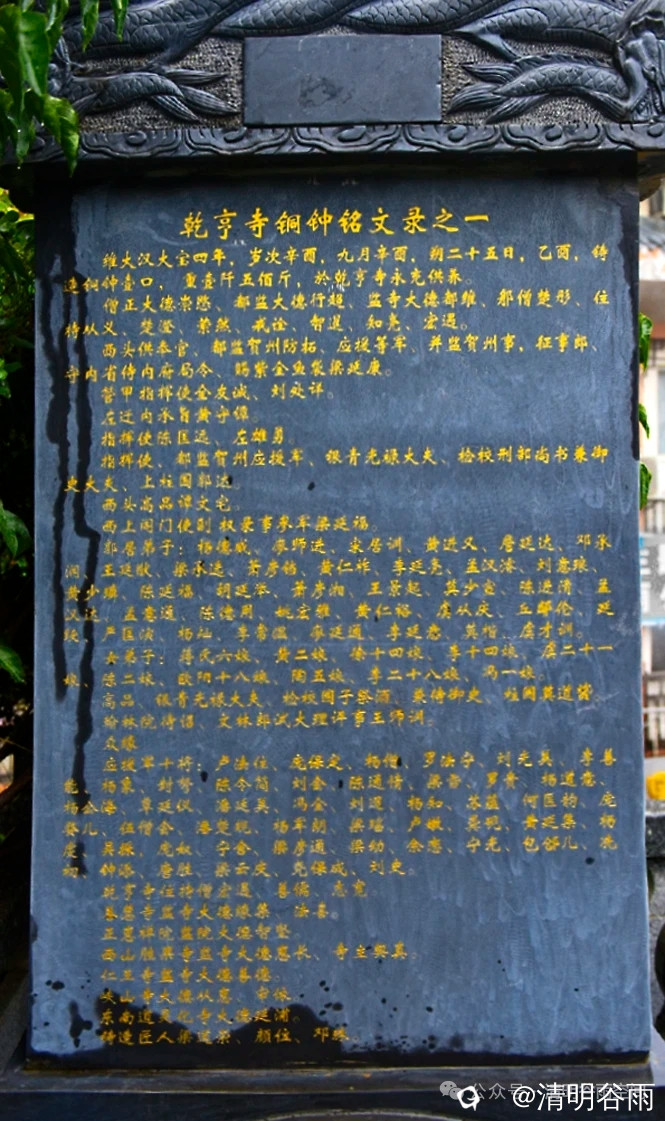 乾亨寺铜钟铭文录之一
维大汉大宝四年，岁次辛酉，九月辛酉，朔二十五日，乙酉，铸
造铜钟壹口，重壹阡五佰斤，於乾亨寺永充供养。
僧正大德崇愍、都监大德行超、监寺大德都维、都僧楚彤、住
持从义、楚澄、景然、戒诠、智道、知尧、宏遇。
西头供奉官、都监贺州防拓、应援等军、并监贺州事，征事郎、
守内省侍内府局令、赐紫金鱼袋梁延康。
管甲指挥使金友诚、刘处详。
左迁内承旨黄守僚。
指挥使陈匡远、左雄勇
指挥使、都监贺州应援军、银青光禄大夫、检校刑部尚书兼御
史大夫、上柱国郭达
西头高品谭文屯
西上阁门使副权录事参军梁延福。
郭居弟子：杨德成、廖师进、宋居训、黄进义、詹廷达、邓承
润、王延 、梁承进、萧彦铭、黄仁祚、李延尧、孟汉漆、刘意琅、
黄少瓒、陈延福、胡廷恭、萧彦湘、王景起、莫少宣、陈进清、孟
汉达、孟意通、陈德周、姚宏雅、黄仁裕、虞从庆、丘邮伦、延
 、严匡演、杨灿、李常溢、廖延通、李廷悫、莫楷、虞才训。
女弟子：蒋氏六娘、黄二娘、徐十四娘、李十四娘、虞二十一
娘、陈二娘、欧阳十八娘、陶五娘、李二十八娘、冯一娘。
高品、银青光禄大夫、检校国子祭酒、兼侍御史、柱国莫道
翰林院待诏、文林郎试大理评事王师训。
众缘
应援军十将：卢法位、庞保定、杨僧、罗法宁、刘光美、李善
 、杨东、封 、陈令简、刘金、陈通情、梁 、罗贵、杨道 、
杨公海、覃延仪、潘延美、冯金、刘通、杨知、苏 、何匡 、庞
 儿、伍僧会、潘楚现、杨军朗、梁瑶、卢 、莫现、黄延集、杨
 、吴 、庞奴、宁金、梁彦通、梁幼、余 、宁光、包 儿、冼
初、钟添、唐胜、梁云度、 保成、刘史。
乾亨寺住持僧宏 、善 、志宽
 寺监寺大德 、法喜。
正 禅院监院大德智坚
西山胜果寺监寺大德恩长、寺主契真。
仁王寺监寺大德善德。
 山寺大德从惠、审依
东南道 化寺大德延浦。
铸造匠人梁道崇、颜位、邓 。
公众号
@清明谷雨